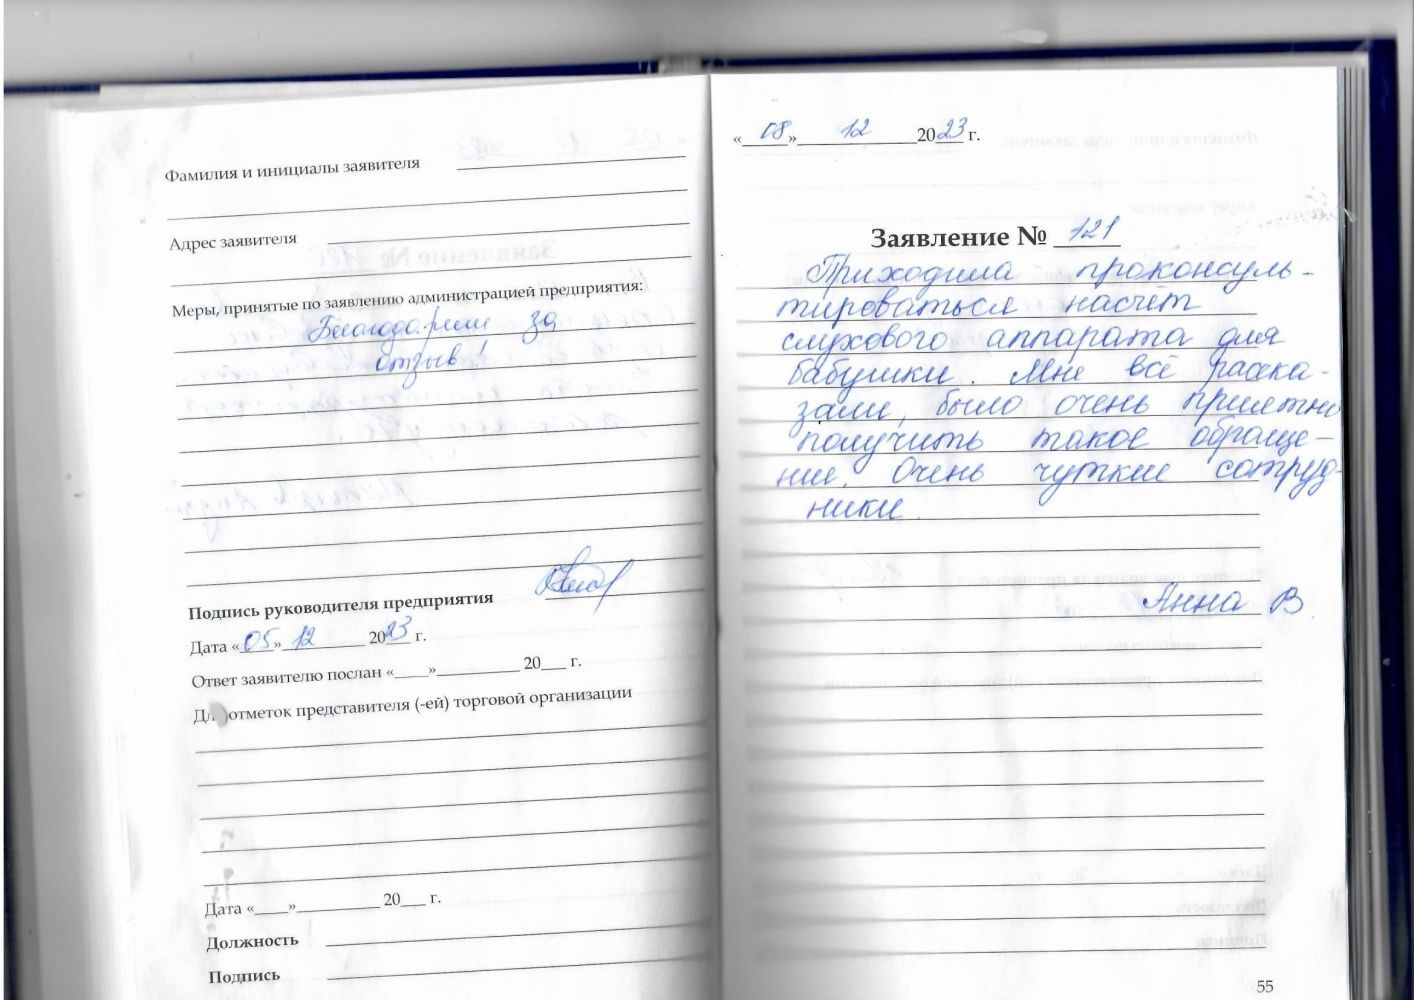 Фамилия и инициалы заявителя
Адрес заявителя
Меры, принятые по заявлению администрацией предприятия:
Благодарим за
отзыв!
Подпись руководителя предприятия
Дата «05» 12 2023 г.
Ответ заявителю послан «____»__________ 20___ г.
Для отметок представителя (-ей) торговой организации
Дата «____»__________ 20___ г.
Должность
Подпись
«08» 12 2023 г.
Заявление № 121
Приходила проконсуль-
тироваться насчёт
слухового аппарата для
бабушки. Мне всё расска-
зали, было очень приятно
получить такое обраще-
ние. Очень чуткие сотруд-
ники.
Анна В
55